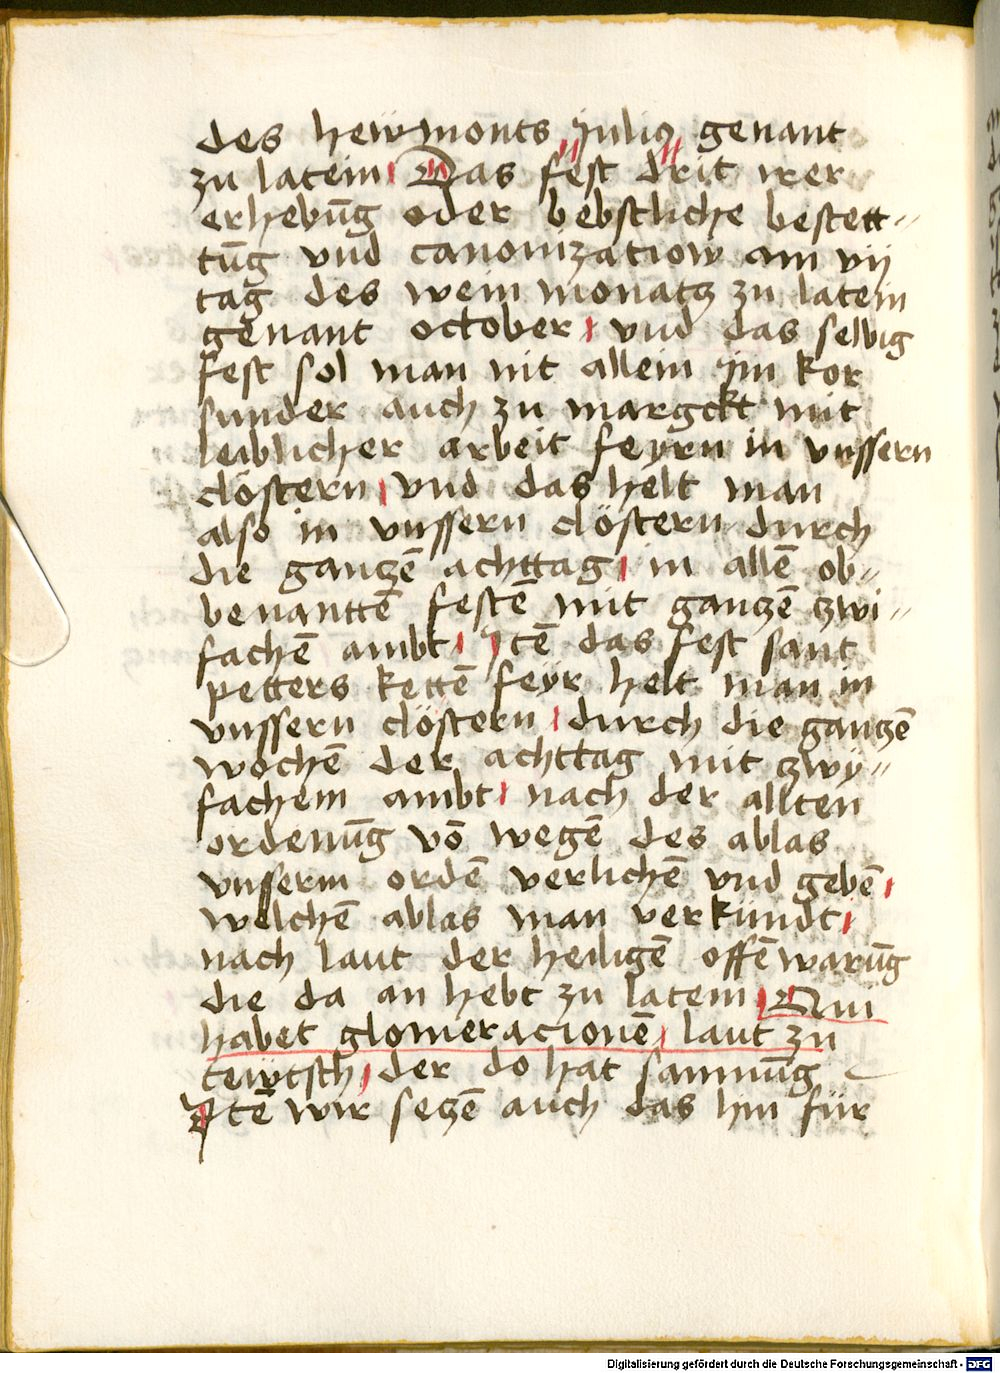 des heẅmonts Julius genant
zu latein Das fest drit irer
erhebūg oder bebstliche bestett-
tūg vnd canonization am vij
tag des wein monatz zu latein
genant october vnd das selbig
fest sol man nit allein ym kor
sunder auch zu margckt mit
leiblicher arbeit feyrn in vnssern
clöstern vnd das helt man
also in vnssern clöstern durch
die gantzē achttag in allē ob-
benanttē festē mit gantzē zwi-
fachē ambt Itē das fest sant
petters kettē feÿr helt man in
vnssern clöstern durch die gantzē
wochē der achttag mit zwÿ-
fachem ambt nach der allten
ordenūg vō wegē des ablas
vnserm ordē verlichē vnd gebē
welchē ablas man verkündt
nach laut der heiligē offēwarūg
die da an hebt zu latein Qui
habet glomeracionē laut zu
teẅtsch der do hat samnūg
Itē wir setzē auch das hin für
Digitalisierung gefördert durch die Deutsche Forschungsgemeinschaft - DFG